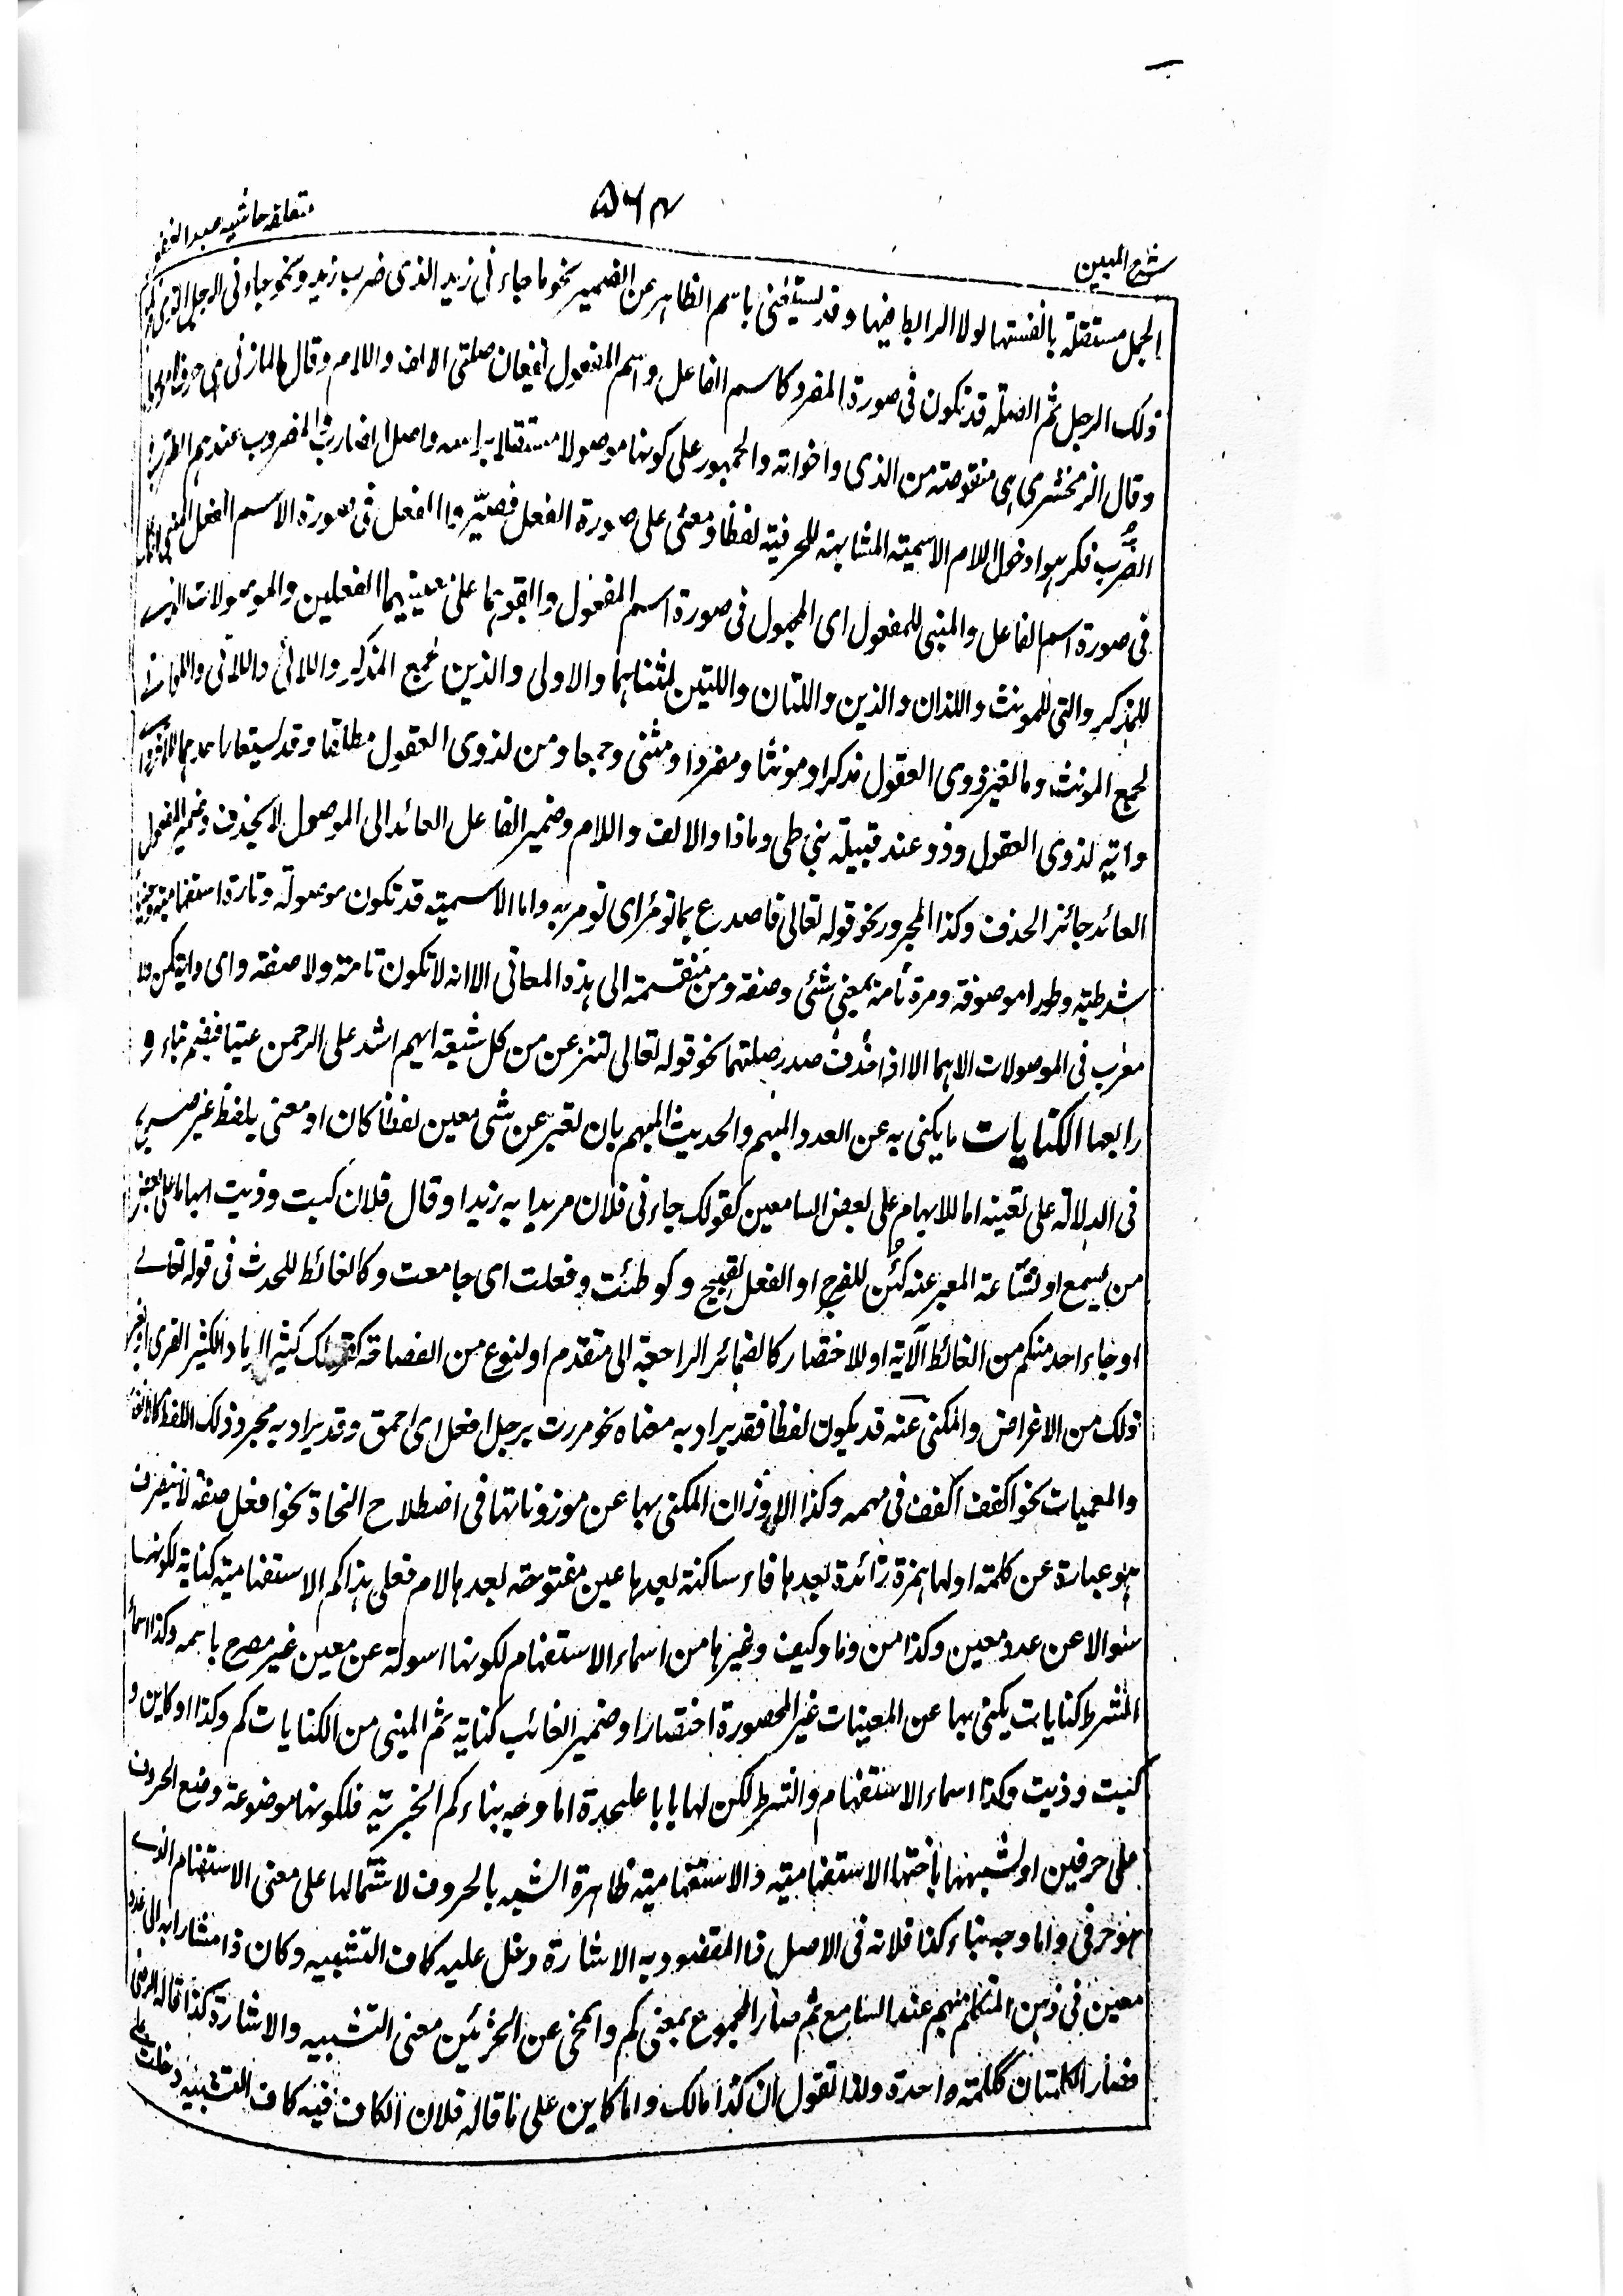 شرح المبين
۵۶۴
متعلقه حاشيه عبد الغفور
الجمل مستقلة بانفسها لولا الرابط فيها وقد يستغنى باسم الظاهر عن الضمير نحو ما جاءنى زيد الذى ضرب زيد ونحو جاءنى الرجل الذى
ذلك الرجل ثم الصلة قد تكون فى صورة المفرد كاسم الفاعل واسم المفعول تقعان صلتى الالف واللام وقال المازنى هى حرف
وقال الزمخشرى هى منقوصة من الذى واخواته والجمهور على كونها موصولا مستقلا براسه واصل الضارب والمضروب عندهم الضرب
الضرب فكرهوا دخول اللام الاسمية المشابهة للحرفية لفظا ومعنى على صورة الفعل فصيروا الفعل فى صورة الاسم الفعل المبنى
فى صورة اسم الفاعل والمبنى للمفعول اى المجهول فى صورة اسم المفعول وابقوهما على معنييهما الفعلين والموصولات الذى
للمذكر والتى للمونث واللذان والذين واللتان واللتين لمثناهما والاولى والذين لجمع المذكر واللائى واللاتى واللواتى
لجمع المونث وما لغير ذوى العقول مذكرا ومونثا ومفردا ومثنى وجمعا ومن لذوى العقول مطلقا وقد يستعار احدهما للاخر
واية لذوى العقول وذو عند قبيلة بنى طى وماذا والالف واللام وضمير الفاعل العائد الى الموصول لا يحذف وضمير المفعول
العائد جائز الحذف وكذا المجرور نحو قوله تعالى فاصدع بما تومر اى تومر به واما الاسمية قد تكون موصولة وتارة استفهامية وحينا
شرطية وطورا موصوفة ومرة تامة بمعنى شئى وصفة ومن منقسمة الى هذه المعانى الا انه لا تكون تامة ولا صفة واى واية كمن ولا
معرب فى الموصولات الا هما الا اذا حذف صدر صلتهما نحو قوله تعالى لننزعن من كل شيعة ايهم اشد على الرحمن عتيا فبضم ياء و
رابعها الكنايات ما يكنى به عن العدد المبهم والحديث المبهم بان تعبر عن شى معين لفظا كان او معنى بلفظ غير صريح
فى الدلالة على تعينه اما للابهام على بعض السامعين كقولك جاءنى فلان مريدا به زيدا وقال فلان كيت وذيت ابهاما على بعض
من يسمع او لشناعة المعبر عنه كهن للفرج او الفعل القبيح وكوطئت وفعلت اى جامعت وكالغائط للحدث فى قوله تعالى
او جاء احد منكم من الغائط الآية او للاختصار كالضمائر الراجعة الى متقدم او لنوع من الفصاحة كقولك كثير الرماد لكثير القرى
ذلك من الاغراض والمكنى عنه قد يكون لفظا فقد يراد به معناه نحو مررت برجل افعل اى احمق وقد يراد به مجرد ذلك اللفظ كالالغاز
والمعميات نحو اكفف اكفف فى مهمه وكذا الاوزان المكنى بها عن موزوناتها فى اصطلاح النحاة نحو افعل صفة لا ينصرف
هو عبارة عن كلمة اولها همزة زائدة بعدها فاء ساكنة بعدها عين مفتوحة بعدها لام فعلى هذا كم الاستفهامية كناية لكونها
سئوالا عن عدد معين وكذا من وما وكيف وغيرها من اسماء الاستفهام لكونها اسولة عن معين غير مصرح باسمه وكذا اسماء
الشرط كنايات يكنى بها عن المعينات غير المحصورة اختصارا وضمير الغائب كناية ثم المبنى من الكنايات كم وكذا وكاين و
كيت وذيت وكذا اسماء الاستفهام والشرط لكن لها بابا عليحدة اما وجه بناء كم الخبرية فلكونها موضوعة وضع الحروف
على حرفين او لشبهها باختها الاستفهامية والاستفهامية ظاهرة الشبه بالحروف لاشتمالها على معنى الاستفهام الذى
هو حرفى واما وجه بناء كذا فلانه فى الاصل ذا المقصود به الاشارة دخل عليه كاف التشبيه وكان ذا مشارا به الى عدد
معين فى ذهن المتكلم مبهم عند السامع ثم صار المجموع بمعنى كم وانمحى عن الجزئين معنى التشبيه والاشارة كذا قاله الرضى
فصار الكلمتان ككلمة واحدة ولذا تقول ان كذا مالك واما كاين على ما قاله فلان الكاف فيه كاف التشبيه دخلت على